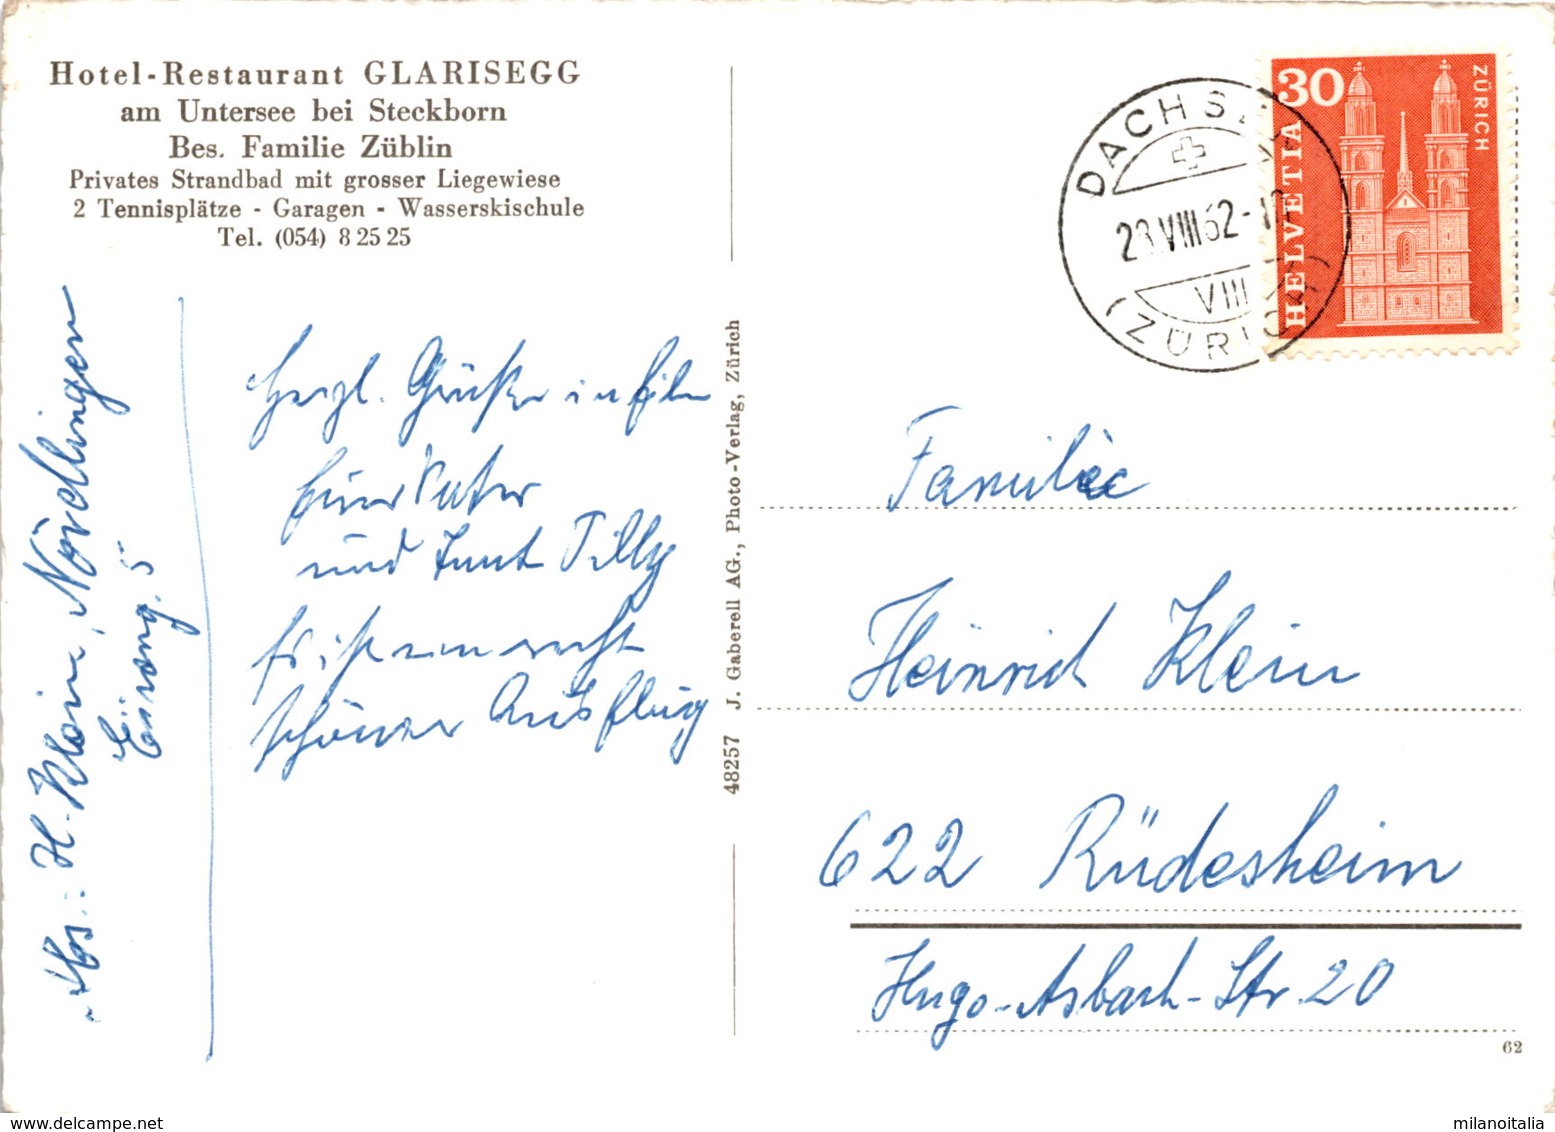 Hotel-Restaurant GLARISEGG
am Untersee bei Steckborn
Bes. Familie Züblin
Privates Strandbad mit grosser Liegewiese
2 Tennisplätze - Garagen - Wasserskischule
Tel. (054) 8 25 25
Herzl. Grüße
Vater
und Tante Tilly
recht
schöner Ausflug
Abs.: H. Klein, Nördlingen
5
48257 J. Gaberell AG., Photo-Verlag, Zürich
DACHS
VIII 62
VIII
(ZÜRICH)
30
ZÜRICH
HELVETIA
Familie
Heinrich Klein
622 Rüdesheim
Hugo-Asbach-Str. 20
62
milanoitalia